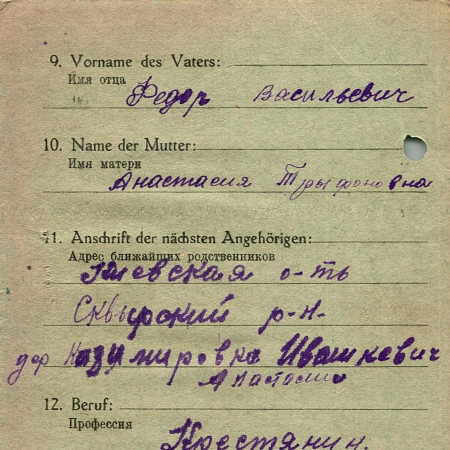 9. Vorname des Vaters:
Имя отца
Федор Васильевич
10. Name der Mutter:
Имя матери
Анастасия Трыфоновна
11. Anschrift der nächsten Angehörigen:
Адрес ближайших родственников
Киевская о-ть
Сквырский р-н.
дер Ивашкевич
Анастасия
12. Beruf:
Профессия
Крестянин.